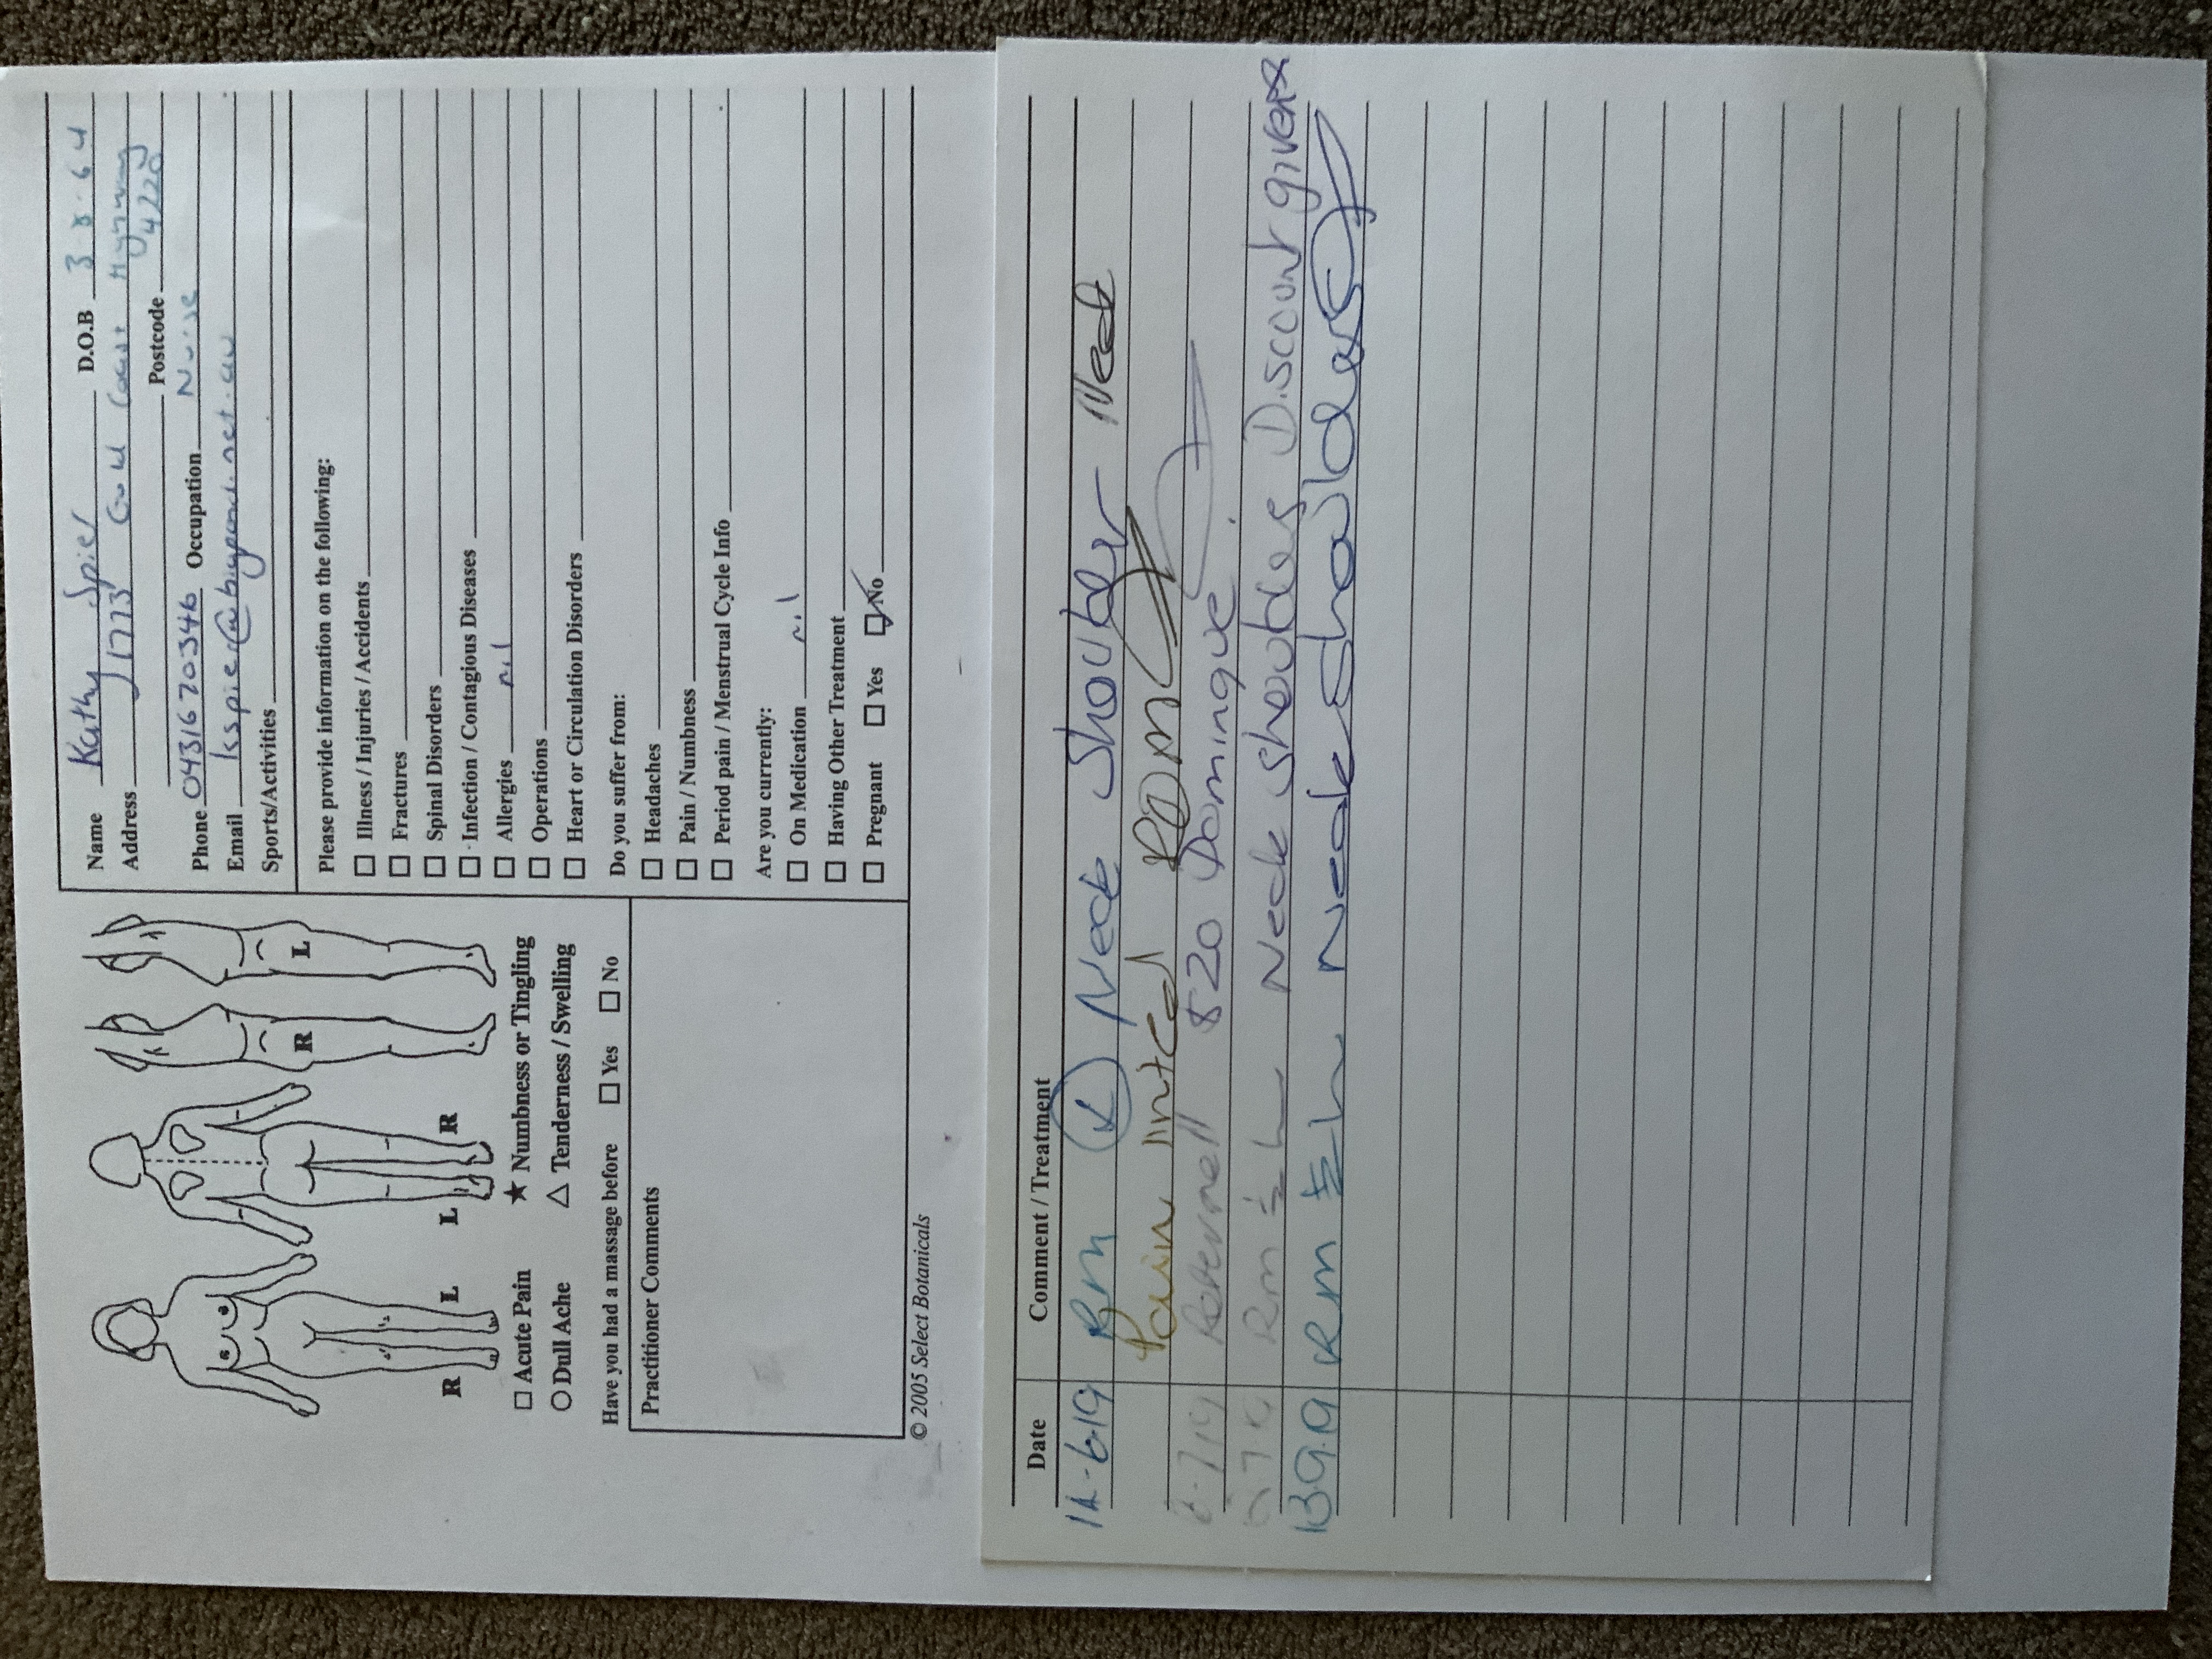 Name Kathy Spier D.O.B 3.8.64
Address 1/1773 Gold Coast Hyway
Postcode 4220
Phone 0431670346 Occupation Nurse
Email kspier@bigpond.net.au
Sports/Activities
Please provide information on the following:
☐ Illness / Injuries / Accidents
☐ Fractures
☐ Spinal Disorders
☐ Infection / Contagious Diseases
☐ Allergies nil
☐ Operations
☐ Heart or Circulation Disorders
Do you suffer from:
☐ Headaches
☐ Pain / Numbness
☐ Period pain / Menstrual Cycle Info
Are you currently:
☐ On Medication nil
☐ Having Other Treatment
☐ Pregnant ☐ Yes ☑ No
R L
L R
R
L
☐ Acute Pain ★ Numbness or Tingling
○ Dull Ache △ Tenderness / Swelling
Have you had a massage before ☐ Yes ☐ No
Practitioner Comments
© 2005 Select Botanicals
Date Comment / Treatment
6.19 Rm Neck Shoulder Neck
Pain
7.19 $20 Dominique
7.19 Rm ½ h Neck Shoulders Discount given
13.9.19 Rm ½ h Neck Shoulders